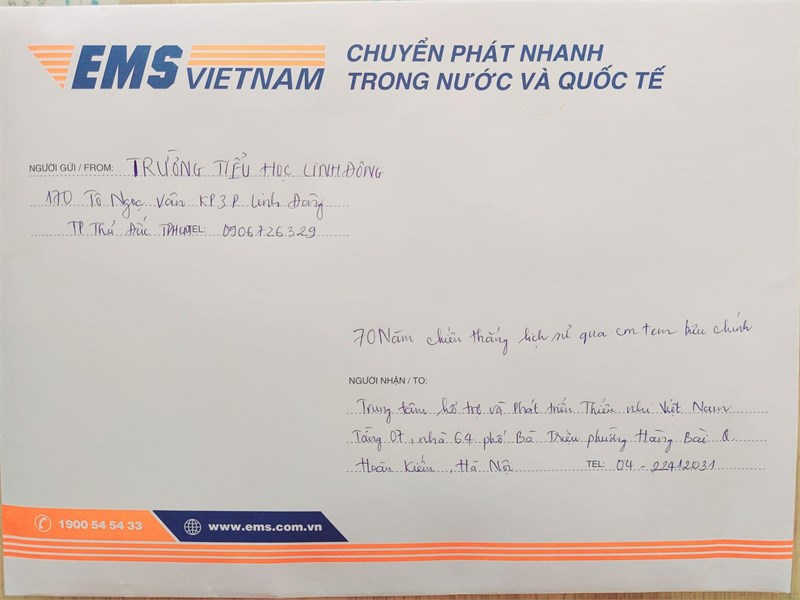 EMS VIETNAM
CHUYỂN PHÁT NHANH
TRONG NƯỚC VÀ QUỐC TẾ
NGƯỜI GỬI / FROM: TRƯỜNG TIỂU HỌC LINH ĐÔNG
170 Tô Ngọc Vân KP3 P. Linh Đông
TP Thủ Đức TPHCM TEL: 0906726329
70 Năm chiến thắng lịch sử qua con tem bưu chính
NGƯỜI NHẬN / TO:
Trung tâm hỗ trợ và Phát triển Thiếu nhi Việt Nam
Tầng 07, nhà 64 phố Bà Triệu phường Hàng Bài Q.
Hoàn Kiếm, Hà Nội TEL: 04 - 22412031
1900 54 54 33
www.ems.com.vn